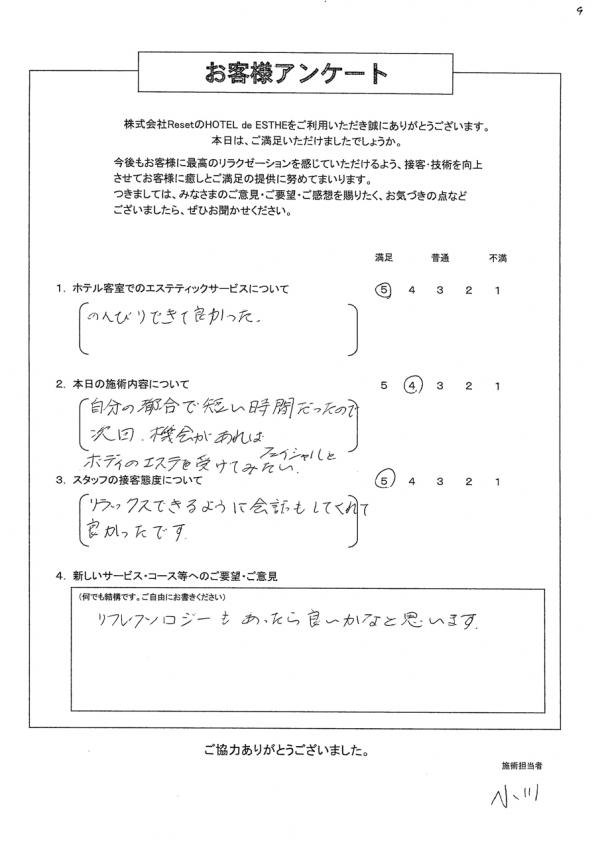 9
お客様アンケート
株式会社ResetのHOTEL de ESTHEをご利用いただき誠にありがとうございます。
本日は、ご満足いただけましたでしょうか。
今後もお客様に最高のリラクゼーションを感じていただけるよう、接客・技術を向上
させてお客様に癒しとご満足の提供に努めてまいります。
つきましては、みなさまのご意見・ご要望・ご感想を賜りたく、お気づきの点など
ございましたら、ぜひお聞かせください。
満足 普通 不満
1. ホテル客室でのエステティックサービスについて 5 4 3 2 1
のんびりできて良かった.
2. 本日の施術内容について 5 4 3 2 1
自分の都合で短い時間だったので
次回、機会があれば
フェイシャルと
ボディのエステを受けてみたい.
3. スタッフの接客態度について 5 4 3 2 1
リラックスできるように会話もしてくれて
良かったです.
4. 新しいサービス・コース等へのご要望・ご意見
(何でも結構です。ご自由にお書きください)
リフレフソロジーも あったら良いかなと思います.
ご協力ありがとうございました。
施術担当者
小川